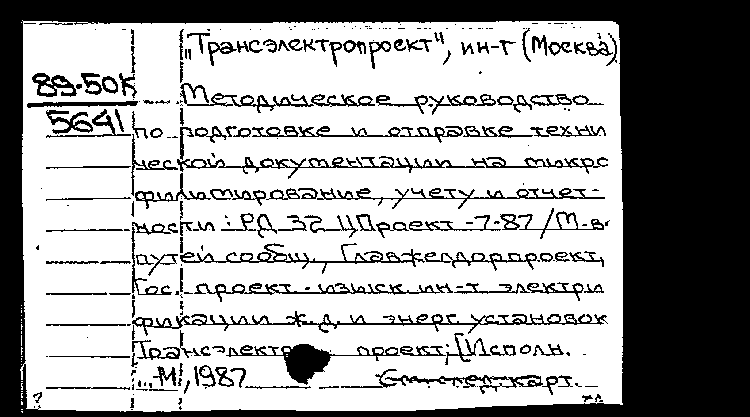 "Трансэлектропроект", ин-т (Москва)
89-50К
5641
Методическое руководство
по подготовке и отправке техни
ческой документации на микро
фильмирование, учету и отчет-
ности : РД 32 ЦПроект -7-87 / М-во
путей сообщ., Главжелдорпроект,
Гос. проект.-изыск. ин-т электри
фикации ж.д. и энерг. установок
Трансэлектро проект; [Исполн.
...М, 1987
карт.